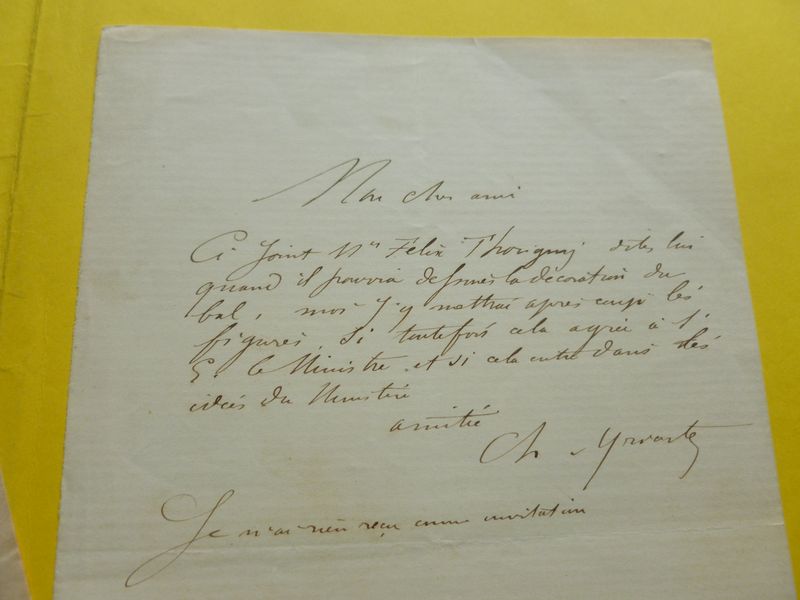 Mon cher ami
Ci Joint Mr Félix Thorigny dites lui
quand il pourra dessiner la décoration du
bal, moi J'y mettrai après coup les
figures, Si toutefois cela agrée à S.
E. le Ministre et si cela entre dans les
idées du Ministère
amitié
Ch Yriarte
Je n'ai rien reçu comme invitation